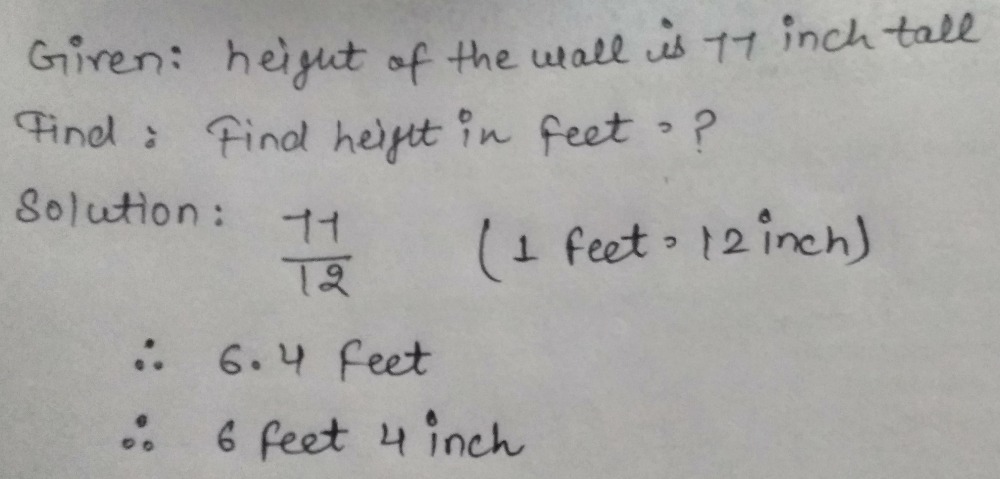 Given: height of the wall is 77 inch tall
Find: Find height in feet = ?
Solution: 77/12 (1 feet = 12 inch)
∴ 6.4 feet
∴ 6 feet 4 inch